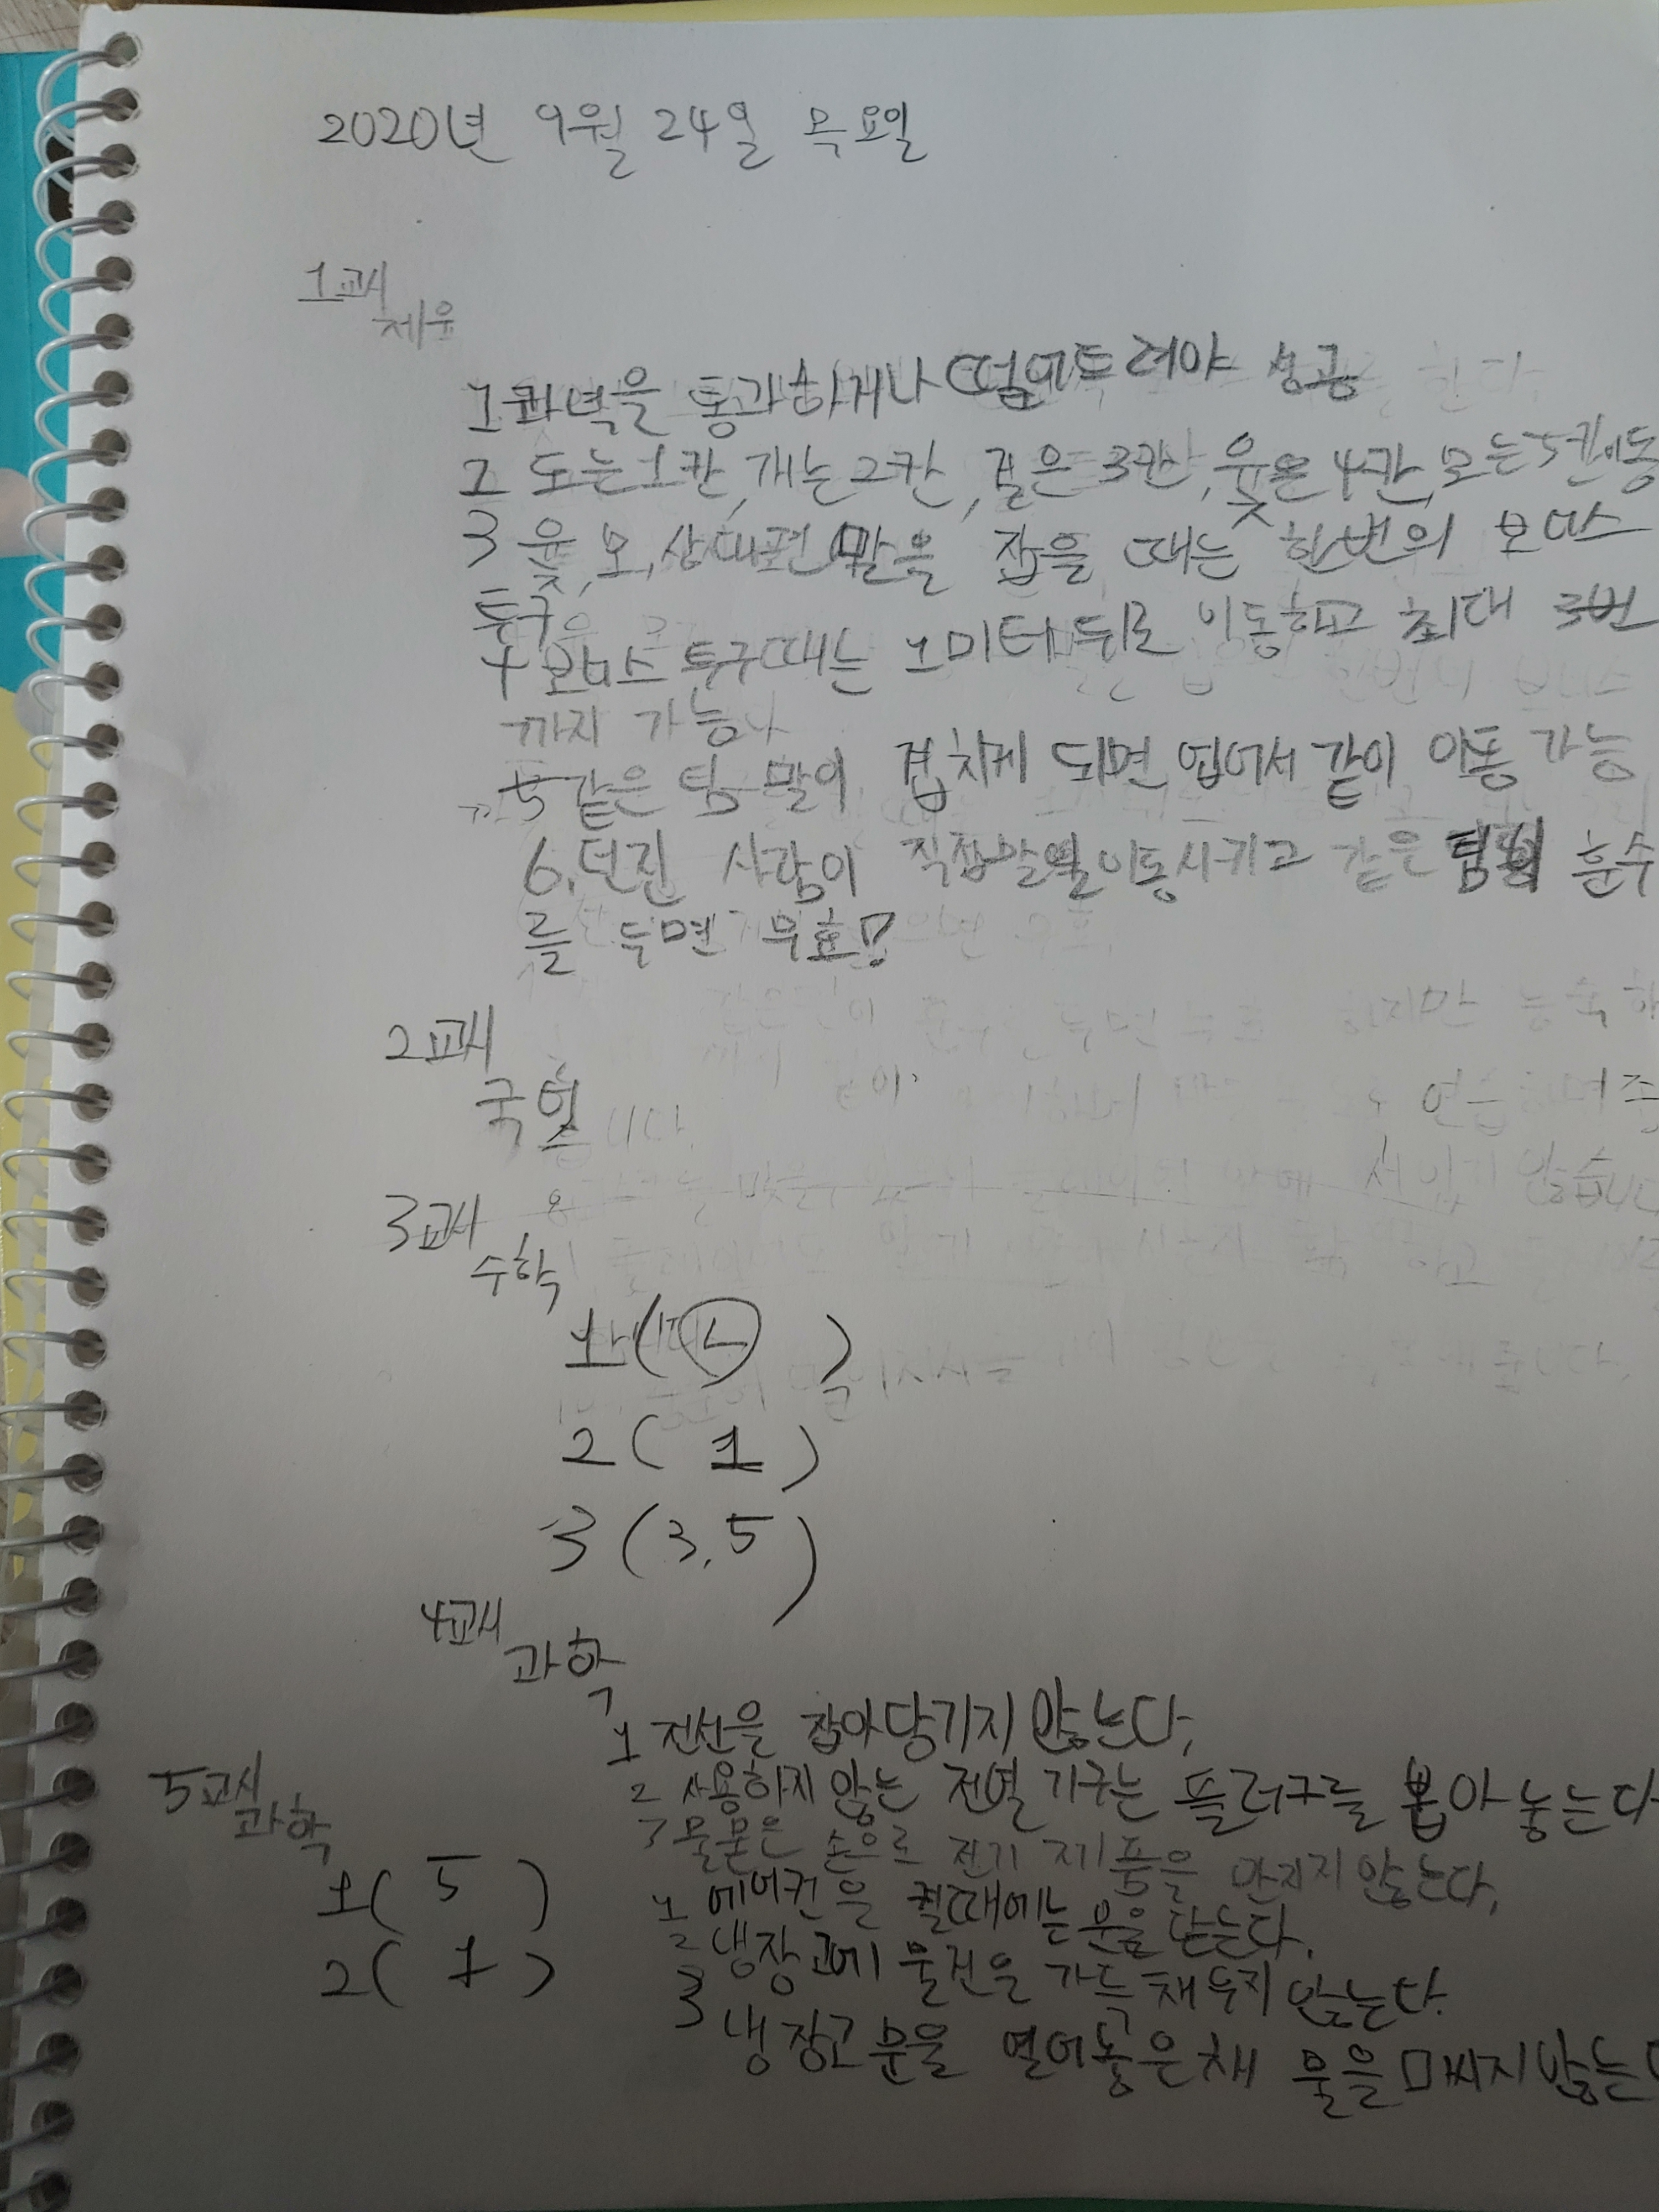 2020년 9월 24일 목요일
1교시
체육
1 과녁을 통과하거나 떨어트려야 성공
2 도는 1칸, 개는 2칸, 걸은 3칸, 윷은 4칸, 모는 5칸이동
3 윷, 모, 상대편 말을 잡을 때는 한번의 보너스
투구
4 보너스 투구때는 1미터 뒤로 이동하고 최대 3번
까지 가능
5 같은 팀 말이 겹치게 되면 업어서 같이 이동 가능
6. 던진 사람이 직접말을이동시키고 같은 팀이 훈수
를 두면 무효!
2교시
국어
3교시
수학
1(ㄴ)
2( 1 )
3 (3, 5)
4교시
과학
1 전선을 잡아당기지 않는다,
2 사용하지 않는 전열 기구는 플러그를 뽑아 놓는다
3 물묻은 손으로 전기 제품을 만지지 않는다,
1 에어컨을 켤때에는 문을 닫는다.
2 냉장고에 물건을 가득 채우지 않는다.
3 냉장고 문을 열어놓은 채 물을 마시지 않는다
5교시
과학
1( 5 )
2( 1 )